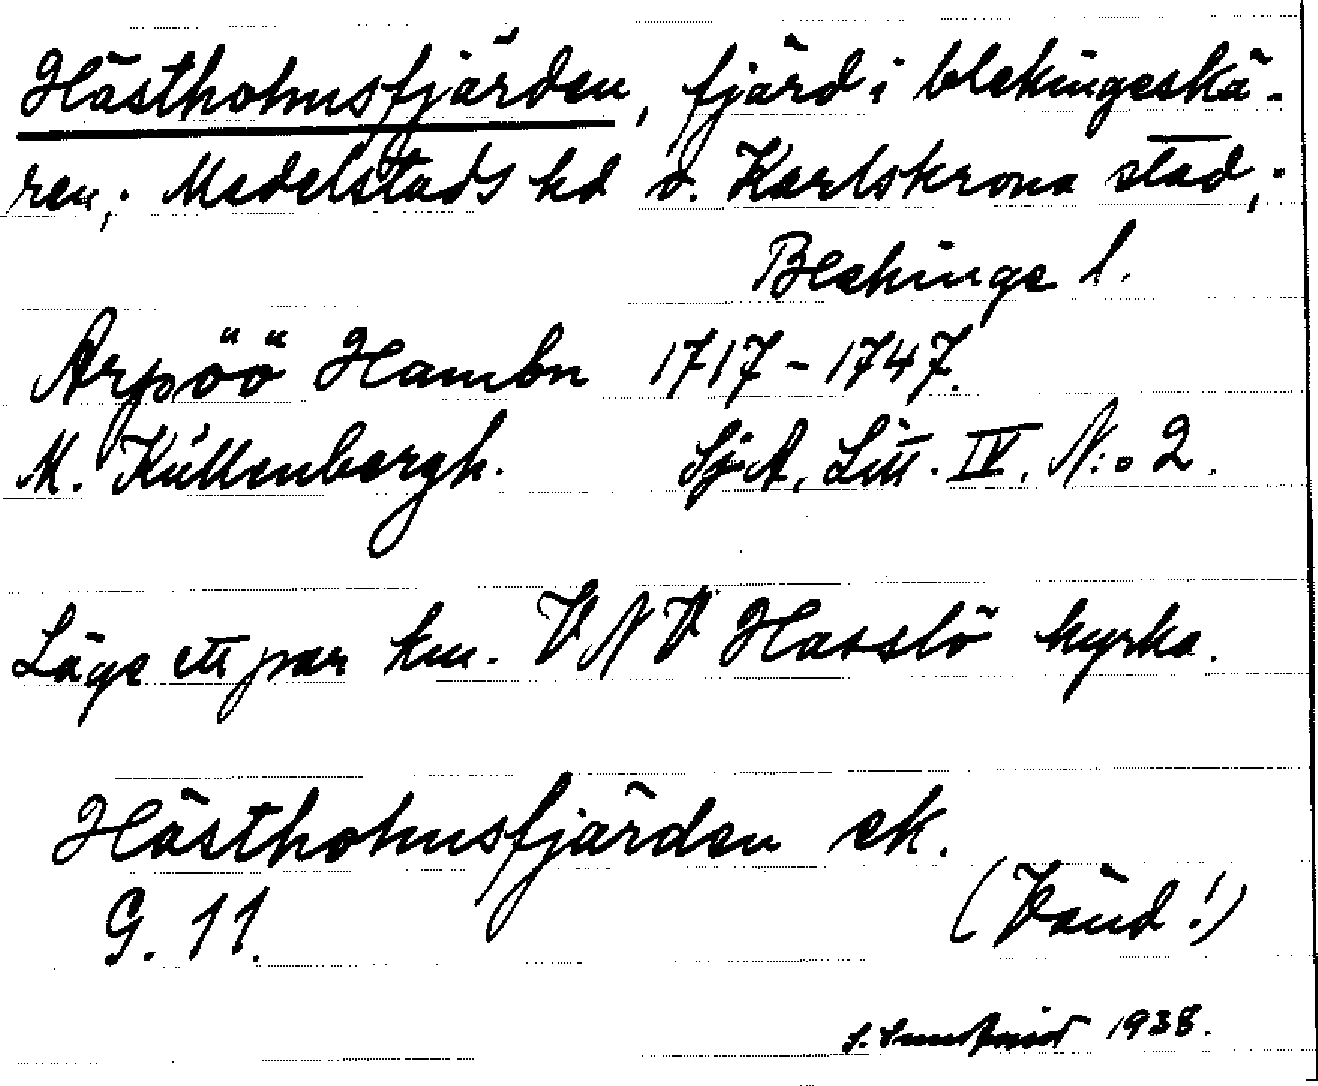 Hästholmsfjärden, fjärd i blekingeskä-
ren; Medelstads hd o. Karlskrona stad;
Blekinge l.
Arpöö Hambn 1717-1747.
M. Küllenbergh. SjA. Litt. IV. N:o 2.
Läge ett par km. VNV Hasslö kyrka.
Hästholmsfjärden ek.
G. 11.
(Vänd!)
1938.